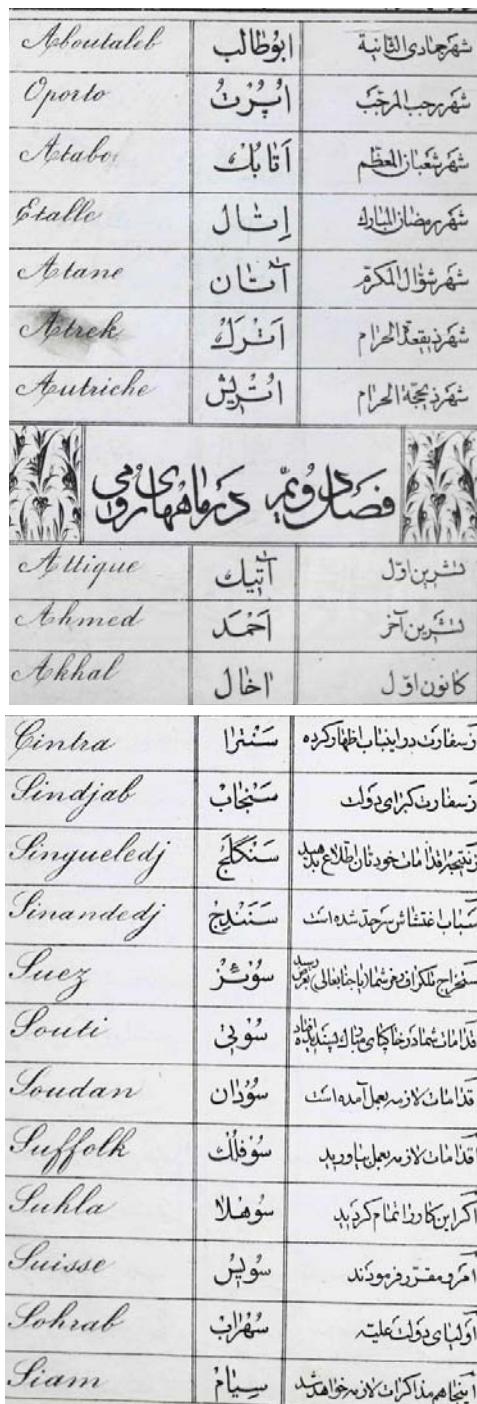 Aboutaleb ابوطالب شهر جمادی الثانیة
Oporto اُپُرتُ شهر رجب المرجّب
Atabo اَتابُك شهر شعبان المعظّم
Etalle اِتال شهر رمضان المبارك
Atane آتان شهر شوّال المكرّم
Atrek اَترَك شهر ذیقعدة الحرام
Autriche اُتریش شهر ذیحجّة الحرام
فصل دویّم در ماههای رومی
Attique آتّیك تشرین اوّل
Ahmed اَحْمَد تشرین آخر
Akhal اخال کانون اوّل
Cintra سَنْترا زسفارت در اینباب اظهار کرده
Sindjab سَنْجابْ زسفارت کبرای دولت
Singueledj سَنْگَلَجْ زنتیجۀ اقدامات خودتان اطلاع بدهید
Sinandedj سَنَنْدِجْ سباب اغتشاش سرحدّ شده است
Suez سُوئز
Souti سُوتی قدامات شما در خاکپای مبارك پسندیده افتاد
Soudan سُوُدان قدامات لازمه بعمل آمده است
Suffolk سُوفُلْك اقدامات لازمه بعمل بیاورید
Suhla سُوهلا اگر این کار را تمام کردید
Suisse سُویسْ امر و مقرّر فرمودند
Sohrab سُهْرابْ اولیای دولت علیّه
Siam سیامْ اینجا هم مذاکرات لازمه خواهد شد